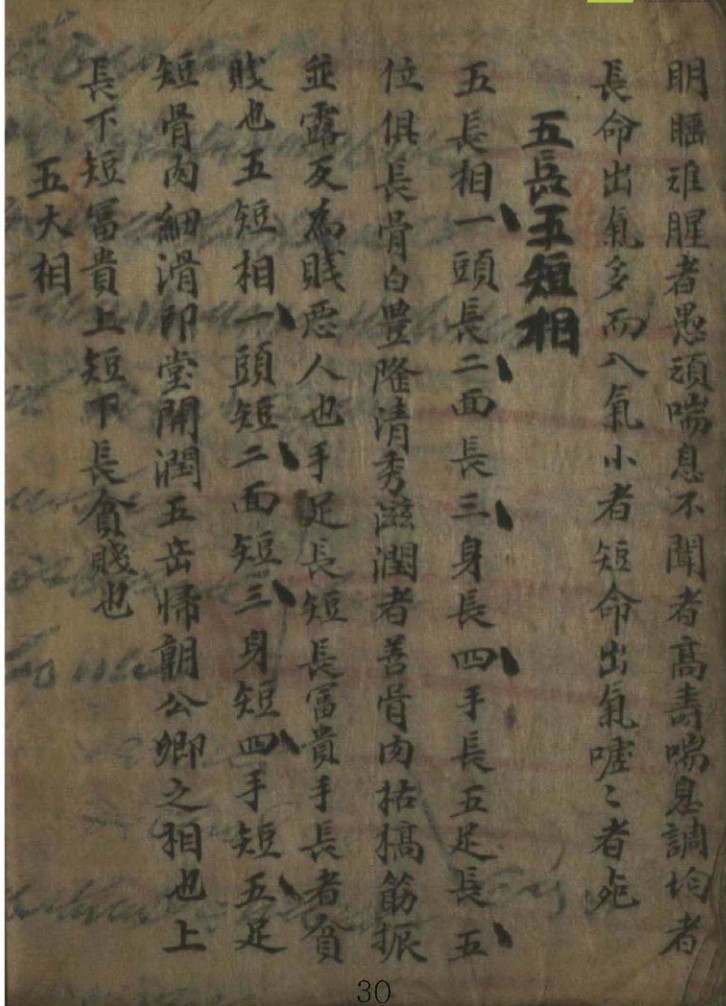 眀睡難腥者愚頑喘息不聞者高壽喘息調均者
長命出氣多而入氣小者短命出氣噓〻者死
五長五短相
五長相一頭長二面長三身長四手長五足長五
位俱長骨白豊隆清秀滋潤者善骨肉枯槁筋振
並露反為賤悪人也手足長短長冨貴手長者貧
賎也五短相一頭短二面短三身短四手短五足
短骨肉細滑印堂開潤五岳㱕朝公卿之相也上
長下短冨貴上短下長貧賤也
五大相
30